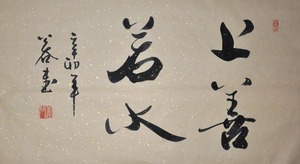 上善
若水
辛卯年